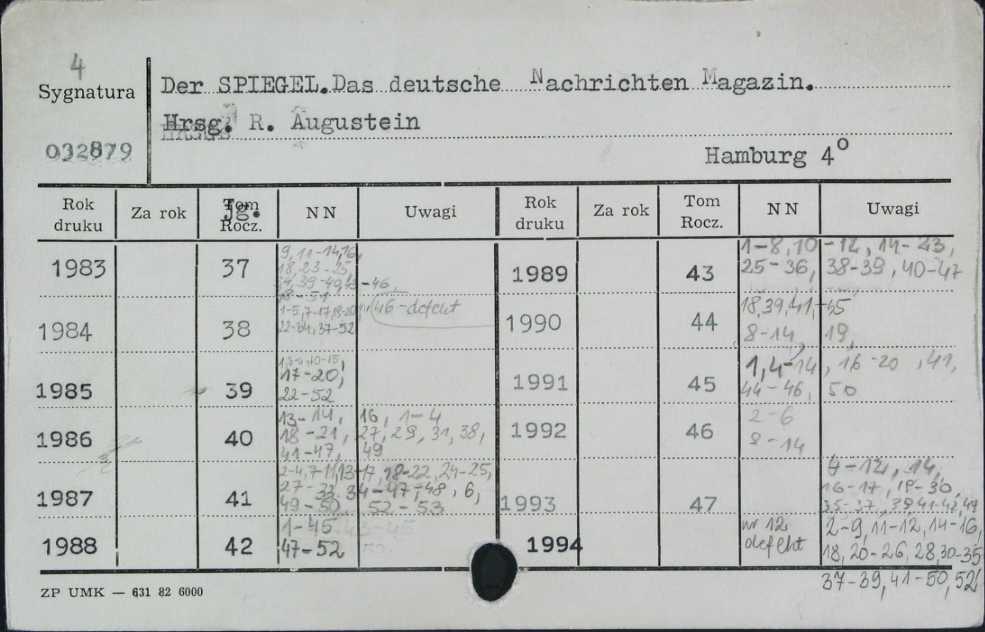 4
Sygnatura
032879
Der SPIEGEL.Das deutsche Nachrichten Magazin.
Hrsg. R. Augustein
Hamburg 4°
Rok druku Za rok Tom Rocz. Jg. N N Uwagi Rok druku Za rok Tom Rocz. N N Uwagi
1983 37 9, 11-14, 16,
18, 23-25,
-46,
48-51
1984 38 46-defekt
22-34, 37-52
1985 39
17-20,
22-52
1986 40 13-14, 16, 1-4
18-21, 27, 29, 31, 38,
41-47, 49
1987 41 2-4, 7-11, 13-17, 18-22, 24-25,
27-32, 34-47, 48, 6,
49-50 52-53
1988 42 1-45
47-52
1989 43 1-8, 10-12, 14-23,
25-36, 38-39, 40-47
1990 44 18, 39, 41,
8-14, 19,
1991 45 1, 4-14, 16-20, 41,
44-46, 50
1992 46 2-6
8-14
1993 47 4-12, 14,
16-17, 19-30,
1994 nr 12
defekt
2-9, 11-12, 14-16,
18, 20-26, 28, 30-35
37-39, 41-50, 52
ZP UMK — 631 82 6000